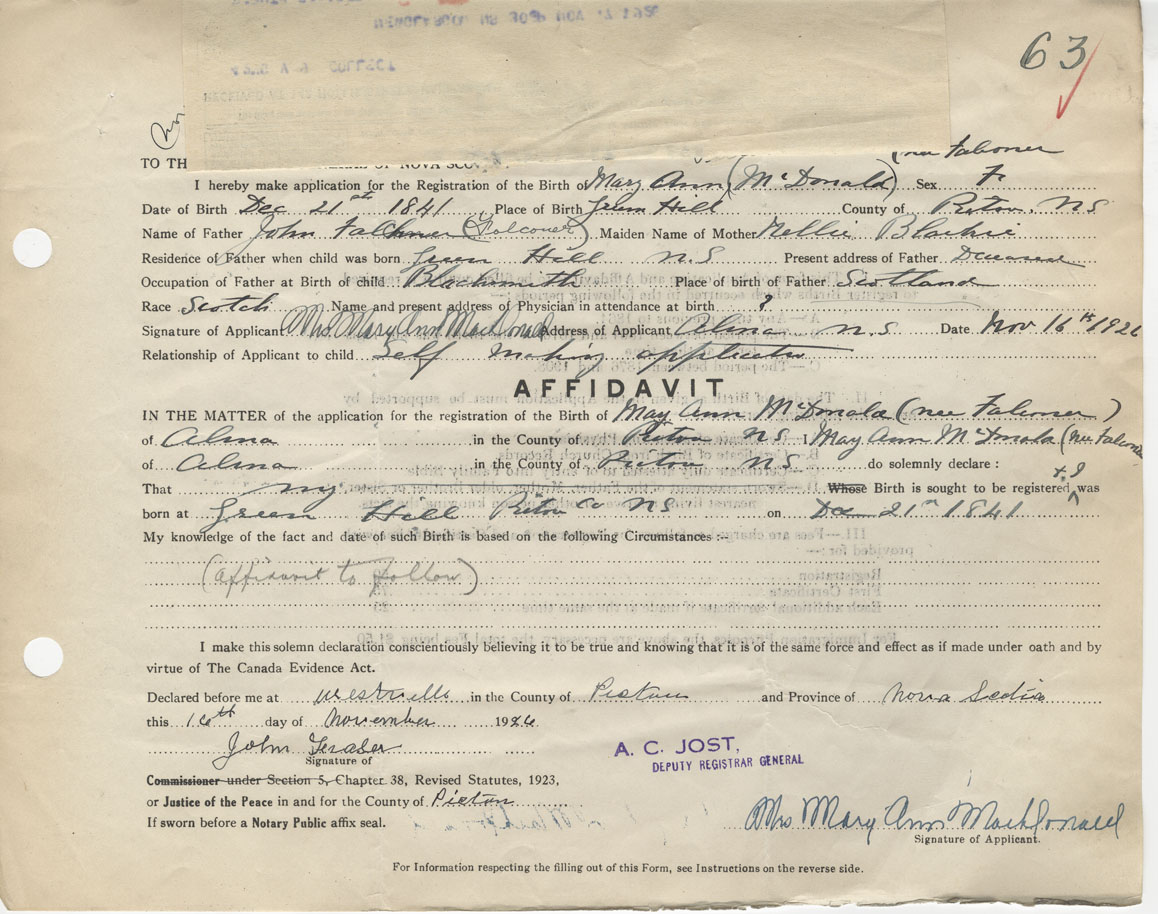 63
TO TH OF NOVA SCO
(nee Falconer
I hereby make application for the Registration of the Birth of Mary Ann (McDonald) Sex F
Date of Birth Dec 21st 1841 Place of Birth Green Hill County of Pictou, NS
Name of Father John Falconer (Falconer) Maiden Name of Mother Nellie Blackie
Residence of Father when child was born Green Hill N.S Present address of Father Deceased
Occupation of Father at Birth of child Blacksmith Place of birth of Father Scotland
Race Scotch Name and present address of Physician in attendance at birth ?
Signature of Applicant Mrs Mary Ann MacDonald Address of Applicant Alma N.S Date Nov 16th 1926
Relationship of Applicant to child Self making application
AFFIDAVIT
IN THE MATTER of the application for the registration of the Birth of Mary Ann McDonald (nee Falconer)
of Alma in the County of Pictou NS I Mary Ann McDonald (nee Falconer
of Alma in the County of Pictou NS do solemnly declare :
That my Whose Birth is sought to be registered, + I was
born at Green Hill Pictou Co NS on Dec 21st 1841
My knowledge of the fact and date of such Birth is based on the following Circumstances :-
(affidavit to follow)
I make this solemn declaration conscientiously believing it to be true and knowing that it is of the same force and effect as if made under oath and by
virtue of The Canada Evidence Act.
Declared before me at Westville in the County of Pictou and Province of Nova Scotia
this 16th day of November 1926
John Fraser
Signature of
A. C. JOST,
DEPUTY REGISTRAR GENERAL
Commissioner under Section 5, Chapter 38, Revised Statutes, 1923,
or Justice of the Peace in and for the County of Pictou
If sworn before a Notary Public affix seal.
Mrs Mary Ann MacDonald
Signature of Applicant.
For Information respecting the filling out of this Form, see Instructions on the reverse side.